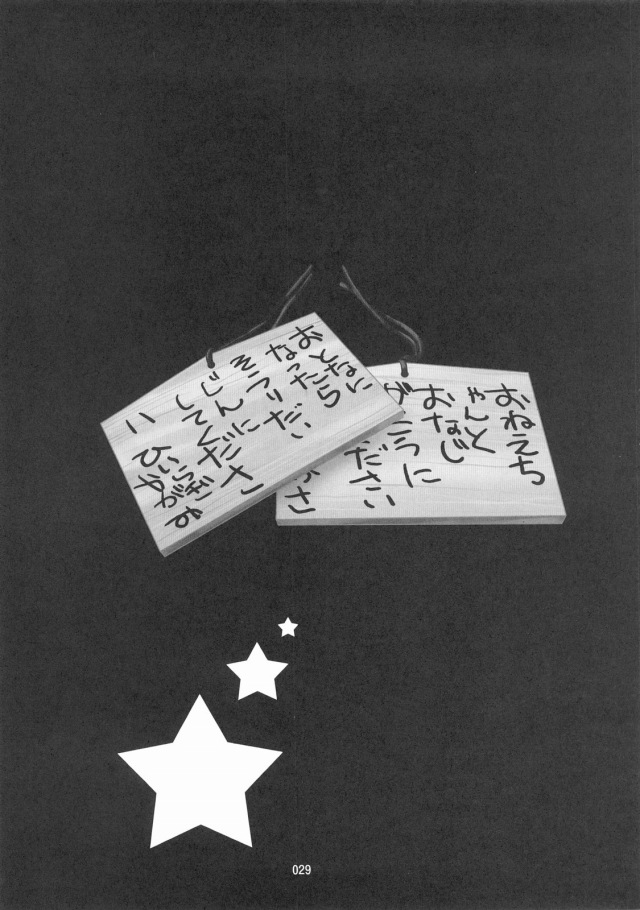 おねえち
ゃんと
おなじ
が こうに
ださい
かさ
おとなに
なったら
そうりだい
じんに
してくださ
い
ひいらぎ
029